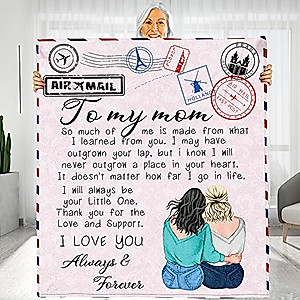 AIR MAIL
HOLLAND
To my mom
So much of me is made from what
I learned from you. I may have
outgrown your lap, but i know I will
never outgrow a place in your heart.
It doesn't matter how far I go in life.
I will always be
your Little One.
Thank you for the
Love and Support.
I LOVE YOU
Always &
Forever